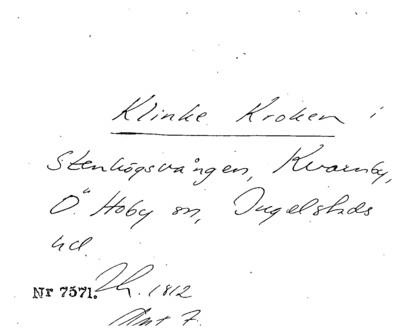 Klinke Kroken i
Stenhögsvången, Kvarnby,
Ö. Hoby sn, Ingelstads
hd.
Nr 7571. Lh. 1812
Akt 7.